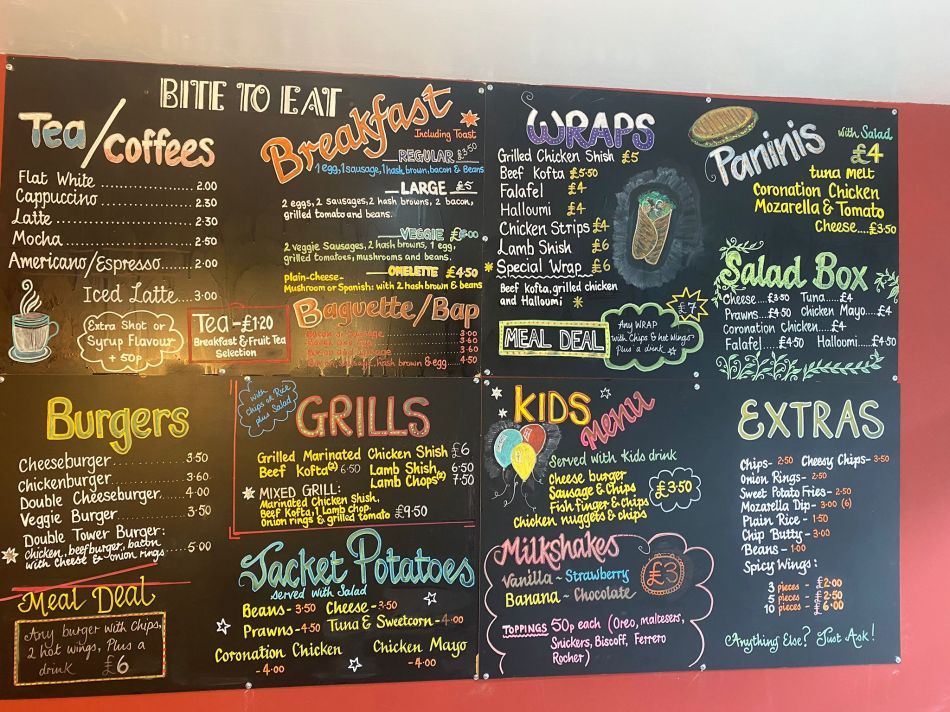 BITE TO EAT
Tea/Coffees
Flat White ......... 2.00
Cappuccino ......... 2.30
Latte ......... 2.30
Mocha ......... 2.50
Americano/Espresso ....... 2.00
Iced Latte .... 3.00
Extra Shot or
Syrup Flavour
+ 50p
Tea - £1.20
Breakfast & Fruit Tea
Selection
Breakfast
Including Toast
REGULAR £3.50
1 egg, 1 sausage, 1 hash brown, bacon & Beans
LARGE £5
2 eggs, 2 sausages, 2 hash browns, 2 bacon,
grilled tomato and beans.
VEGGIE
2 veggie Sausages, 2 hash browns, 1 egg,
grilled tomatoes, mushrooms and beans.
OMELETTE £4.50
Plain-Cheese-
Mushroom or Spanish: with 2 hash brown & beans
Baguette/Bap
Bacon or Sausage 3.00
Bacon and egg 3.60
Bacon and sausage 3.60
hash brown & egg .... 4.50
WRAPS
Grilled Chicken Shish £5
Beef Kofta £5.50
Falafel £4
Halloumi £4
Chicken Strips £4
Lamb Shish £6
Special Wrap £6
Beef Kofta, grilled chicken
and Halloumi
MEAL DEAL
Any WRAP
with Chips & hot wings
Plus a drink
£7
Paninis
with Salad
£4
tuna melt
Coronation Chicken
Mozarella & Tomato
Cheese .... £3.50
Salad Box
Cheese .... £3.50 Tuna .... £4
Prawns .... £4.50 Chicken Mayo .... £4
Coronation Chicken .... £4
Falafel .... £4.50 Halloumi .... £4.50
Burgers
Cheeseburger ......... 3.50
Chickenburger ......... 3.60
Double Cheeseburger ..... 4.00
Veggie Burger ......... 3.50
Double Tower Burger:
chicken, beefburger, bacon
with cheese & onion rings ... 5.00
Meal Deal
Any burger with chips,
2 hot wings, Plus a
drink £6
With
Chips or Rice
plus Salad
GRILLS
Grilled Marinated Chicken Shish £6
Beef Kofta(2) 6.50 Lamb Shish 6.50
Lamb Chops(3) 7.50
MIXED GRILL:
Marinated Chicken Shish,
Beef Kofta, 1 Lamb chop,
Onion rings & grilled tomato £9.50
Jacket Potatoes
served with Salad
Beans - 3.50 Cheese - 3.50
Prawns - 4.50 Tuna & Sweetcorn - 4.00
Coronation Chicken Chicken Mayo
- 4.00 - 4.00
KIDS Menu
Served with Kids drink
Cheese burger
Sausage & Chips
Fish finger & chips
Chicken nuggets & chips
£3.50
Milkshakes
Vanilla ~ Strawberry
Banana ~ Chocolate
£3
TOPPINGS 50p each (Oreo, maltesers,
Snickers, Biscoff, Ferrero
Rocher)
EXTRAS
Chips - 2.50 Cheesy Chips - 3.50
Onion Rings - 2.50
Sweet Potato Fries - 2.50
Mozarella Dip - 3.00 (6)
Plain Rice - 1.50
Chip Butty - 3.00
Beans - 1.00
Spicy Wings:
3 pieces - 2.00
5 pieces - 2.50
10 pieces - 6.00
Anything Else? Just Ask!